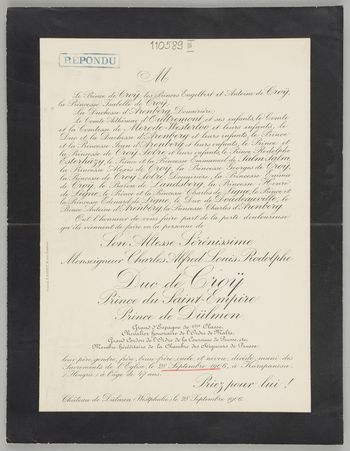 110589 III
REPONDU
M
Le Prince de Croÿ, les Princes Engelbert et Antoine de Croÿ,
la Princesse Isabelle de Croÿ,
La Duchesse d'Arenberg, Douairière,
Le Comte Adhémar d'Oultremont et ses enfants, le Comte
et la Comtesse de Mérode-Westerloo et leurs enfants, le
Duc et la Duchesse d'Arenberg et leurs enfants, le Prince
et la Princesse Jean d'Arenberg et leurs enfants, le Prince et
la Princesse de Croÿ Solre et leurs enfants, le Prince Rodolphe
Esterházy, le Prince et la Princesse Emmanuel de Salm Salm,
la Princesse Alexis de Croÿ, la Princesse Georges de Croÿ,
la Princesse de Croÿ Solre, Douairière, la Princesse Emma
de Croÿ, le Baron de Landsberg, la Princesse Henri
de Ligne, le Prince et la Princesse Charles de Ligne, le Prince et la
Princesse Edouard de Ligne, le Duc de Doudeauville, le
Prince Antoine d'Arenberg, la Princesse Charles d'Arenberg
Ont l'honneur de vous faire part de la perte douloureuse
qu'ils viennent de faire en la personne de
Son Altesse Sérénissime
Monseigneur Charles Alfred Louis Rodolphe
Duc de Croÿ
Prince du Saint-Empire
Prince de Dülmen
Grand d'Espagne de 1ère Classe,
Chevalier honoraire de l'Ordre de Malte,
Grand Cordon de l'Ordre de la Couronne de Prusse, etc.
Membre héréditaire de la Chambre des Seigneurs de Prusse.
leur père, gendre, frère, beau-frère, oncle et neveu, décédé, muni des
Sacrements de l'Eglise, le 28 Septembre 1906, à Karapancsa
(Hongrie) à l'âge de 47 ans.
Priez pour lui !
Château de Dülmen (Westphalie), le 28 Septembre 1906.